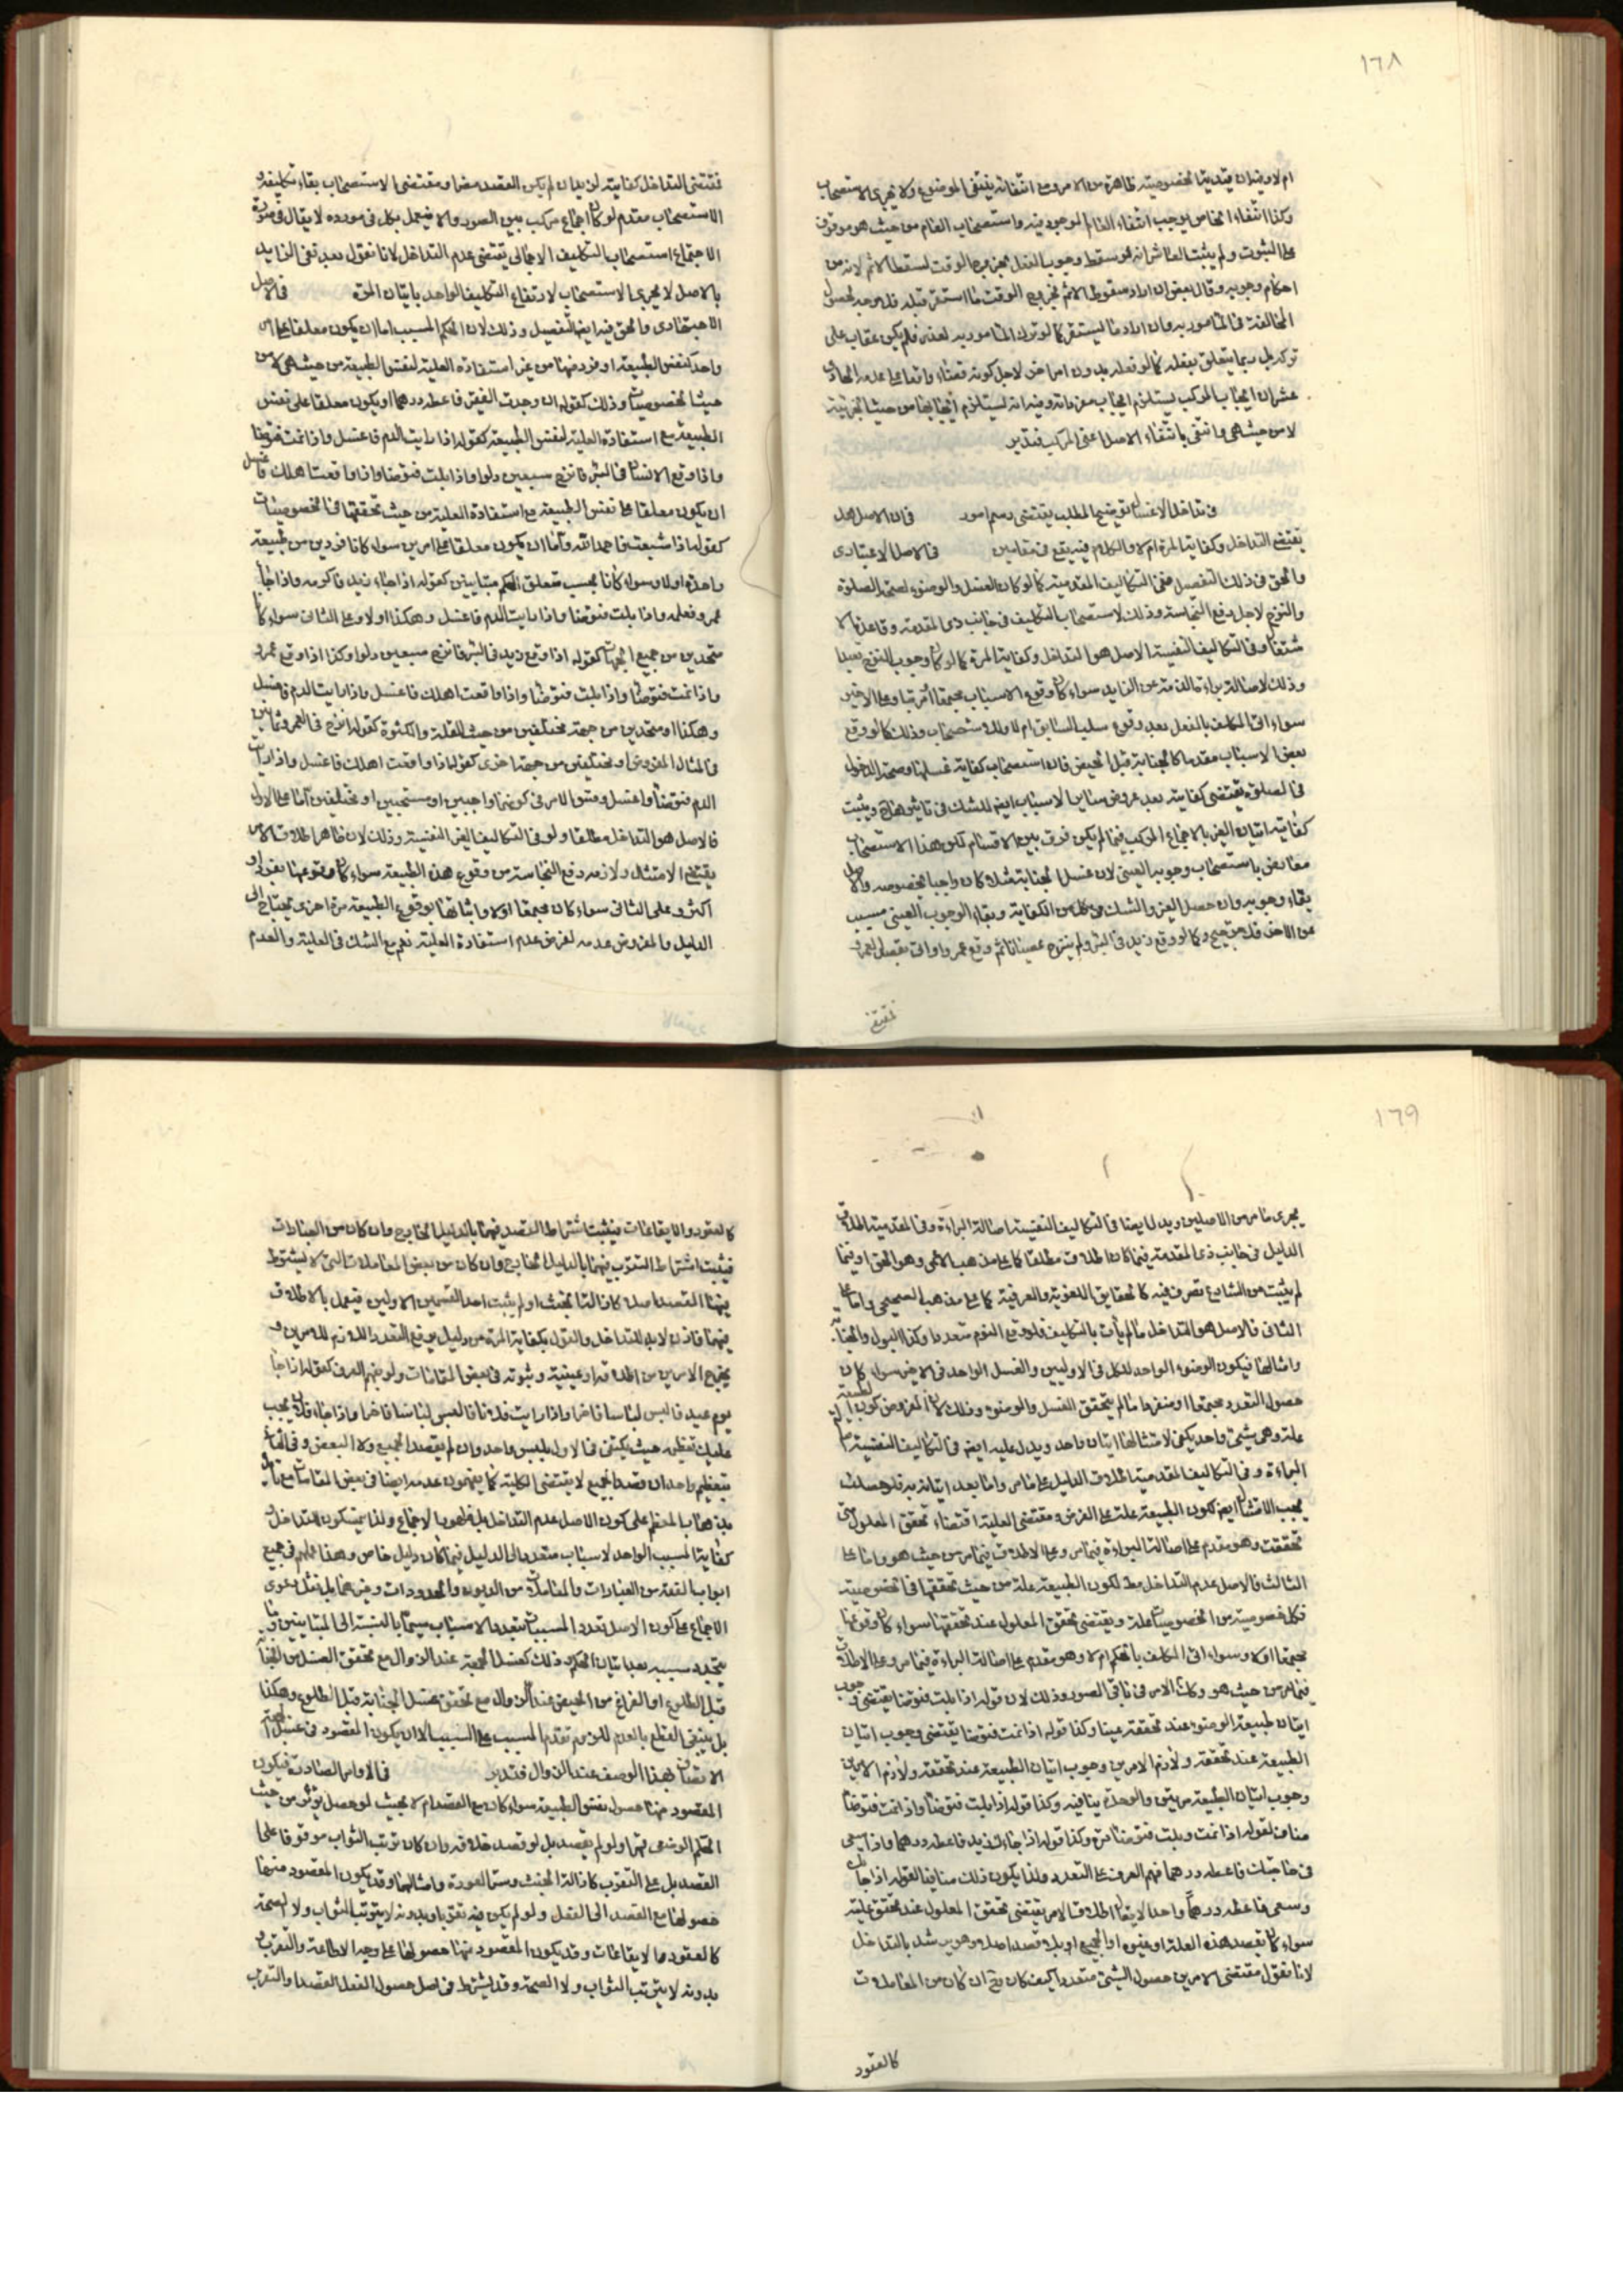 ١٦٨
ام لا وفيه ان قيديته بخصوصيته ظاهرة من الامر ومع انتفائه ينتفى الموضوع ولا يجرى الاستصحاب
وكذا انتفاء الخاص يوجب انتفاء العام الموجود فيه واستصحاب العام من حيث هو موقوف
على الثبوت ولم يثبت العاشر انه لو سقط وجوب الفعل بخروج الوقت لسقط الاثم لانه من
احكام وجوبه وقال بعض ان اراد سقوط الاثم بخروج الوقت ما استقر قبله فلا وجه لحصول
المخالفة فى المامور به وان اراد ما ليستقر كما لو ترك المامور به لعذر فلم يكن عقاب على
تركه بل ربما يتعلق بفعله كما لو فعله بدون امر اخر لاجل كونه قضاء واقعا على عدمه الحادى
عشر ان ايجاب المركب يستلزم ايجاب مفرداته وفيه انه يستلزم ايجابها من حيث الجزئية
لا من حيث هى وانتفى بانتفاء الاصل اعنى المركب فتدبر
فى تداخل الاغسال توضيح المطلب يقتضى رسم امور فى ان الاصل هل
يقتضى التداخل وكفاية المرة ام لا والكلام فيه يقع فى مقامين فى الاصل الاعتبادى
والحق فى ذلك التفصيل ففى التكاليف المقدمية كما لو كان الغسل والوضوء لصحة الصلوة
والنزح لاجل رفع النجاسة وذلك لاستصحاب التكليف فى جانب ذى المقدمة وقاعدة الا
شتغال وفى التكاليف النفسية الاصل هو التداخل وكفاية المرة كما لو كان وجوب النزح تعبدا
وذلك لاصالة براءة الذمة عن الزايد سواء كان وقوع الاسباب مجتمعا ام مرتبا وعلى الاخير
سواء اتى المكلف بالفعل بعد وقوع سبب السابق ام لا وذلك كما لو وقع
بعض الاسباب مقدما كالجنابة قبل الحيض فان استصحاب كفاية غسلها وصحة الدخول
فى الصلوة يقتضى كفايته بعد عروض سائر الاسباب ايضا للشك فى تاثيرها ح ويثبت
كفاية اتيان الغير بالاجماع المركب فيما لم يكن فرق بين الاقسام لكن هذا الاستصحاب
معارض باستصحاب وجوبه العينى لان غسل الجنابة مثلا كان واجبا بخصوصه والاصل
بقاء وجوبه وان حصل الغير والشك فى كل من الكفاية وبقاء الوجوب العينى مسبب
عن الاخر فلا ترجيح وكما لو وقع زيد فى البئر ولم ينزح عصيانا ثم وقع عمرو او اتى بفصل لعمرو
فمقتضى
فمقتضى التداخل كفايته لزيد ان لم يكن القصد مضرا ومقتضى الاستصحاب بقاء تكليفه و
الاستصحاب مقدم لو كان اجماع مركب بين الصور والا فيعمل بكل فى مورده لا يقال فى صورة
الاجتماع استصحاب التكليف الاجمالى يقتضى عدم التداخل لانا نقول بعد نفى الزايد
بالاصل لا يجرى الاستصحاب لارتفاع التكليف الواحد باتيان المرة فى الاصل
الاجتهادى والحق فيه ايضا التفصيل وذلك لان الحكم المسبب اما ان يكون معلقا على امر
واحد كنفس الطبيعة او فرد منها من غير استفادة العلية لنفس الطبيعة من حيث هى لا من
حيث الخصوصيات وذلك كقوله ان وجدت الفقير فاعطه درهما او يكون معلقا على نفس
الطبيعة مع استفادة العلية لنفس الطبيعة كقوله اذا رايت الدم فاغتسل واذا نمت فتوضا
واذا وقع الانسان فى البئر فانزح سبعين دلوا واذا بلت فتوضا واذا واقعت اهلك فاغتسل
او يكون معلقا على نفس الطبيعة مع استفادة العلية من حيث تحققها فى الخصوصيات
كقوله اذا شبعت فاحمد الله واما ان يكون معلقا على امرين سواء كانا فردين من طبيعة
واحدة اولا وسواء كانا بحسب متعلق الحكم متباينين كقوله اذا جاء زيد فاكرمه واذا جاء
عمرو فعلمه واذا بلت فتوضا واذا رايت الدم فاغتسل وهكذا اولا وعلى الثانى سواء كانا
متحدين من جميع الجهات كقوله اذا وقع زيد فى البئر فانزح سبعين دلوا وكذا اذا وقع عمرو
واذا نمت فتوضا واذا بلت فتوضا واذا واقعت اهلك فاغتسل واذا رايت الدم فاغتسل
وهكذا او متحدين من جهة مختلفين من حيث القلة والكثرة كقوله انزح فى العمرو ثمانين
فى المثال المفروض او مختلفين من جهة اخرى كقوله اذا واقعت اهلك فاغتسل واذا رايت
الدم فتوضا واغتسل وسواء الامر فى كونهما واجبين او مستحبين او مختلفين اما على الاول
فالاصل هو التداخل مطلقا ولو فى التكاليف الغير النفسية وذلك لان ظاهر اطلاق الامر
يقتضى الامتثال ولازمه رفع النجاسة من وقوع هذه الطبيعة سواء كان وقوعها بفرد او
اكثر وعلى الثانى سواء كان مجتمعا اولا واثباتها بوقوع الطبيعة مرة اخرى يحتاج الى
الدليل والمفروض عدمه لفرض عدم استفادة العلية نعم مع الشك فى العلية والعدم
١٦٩
يجرى ما مر من الاصلين ويدل ايضا فى التكاليف النفسية اصالة البراءة وفى المقدمية اطلاق
الدليل فى جانب ذى المقدمة فيما كان اطلاق مطلقا كما على مذهب الاعمى وهو الحق او فيما
لم يثبت من الشارع تصرف فيه كالحقايق اللغوية والعرفية كما على مذهب الصحيحى واما على
الثانى فالاصل هو التداخل ما لم يأت بالتكليف فلو وقع النوم متعددا وكذا البول والجنابة
وامثالها فيكون الوضوء الواحد للكل فى الاوليين والغسل الواحد فى الاخير سواء كان
حصول التعدد مجتمعا او متفرقا ما لم يتحقق الغسل والوضوء وذلك لان المفروض كون الطبيعة
علة وهى شيئ واحد يكفى لامتثالها اتيان واحد ويدل عليه ايضا فى التكاليف النفسية اصالة
البراءة وفى التكاليف المقدمية اطلاق الدليل على ما مر واما بعد اتيانه به فلو حصلت
يجب الامتثال ايضا لكون الطبيعة علة على الفرض ومقتضى العلية اقتضاء تحقق المعلول متى
تحققت وهو مقدم على اصالة البراءة فيما مر وعلى الاطلاق فيما مر من حيث هو واما على
الثالث فالاصل عدم التداخل مط لكون الطبيعة علة من حيث تحققها فى الخصوصية
فكل خصوصية من الخصوصيات علة ويقتضى تحقق المعلول عند تحققها سواء كان وقوعها
مجتمعا اولا وسواء اتى المكلف بالحكم ام لا وهو مقدم على اصالة البراءة فيما مر وعلى الاطلاق
فيما مر من حيث هو وكذا الامر فى باقى الصور وذلك لان قوله اذا بلت فتوضا يقتضى وجوب
اتيان طبيعة الوضوء عند تحققه عينا وكذا قوله اذا نمت فتوضا يقتضى وجوب اتيان
الطبيعة عند تحققه ولازم الامرين وجوب اتيان الطبيعة عند تحققه ولازم الامرين
وجوب اتيان الطبيعة مرتين والوحدة ينافيه وكذا قوله اذا بلت فتوضا واذا نمت فتوضا
مناف لقوله اذا نمت وبلت فتوضا مرة وكذا قوله اذا جاءك زيد فاعطه درهما واذا سعى
فى حاجتك فاعطه درهما فهم العرف على التعدد ولذا يكون ذلك منافيا لقوله اذا جاءك
وسعى فاعطه درهما واحدا لا يقال اطلاق الامر يقتضى تحقق المعلول عند تحقق علته
سواء كان بقصد هذه العلة او غيره او الجميع او بلا قصد اصلا وهو يرشد بالتداخل
لانا نقول مقتضى الامرين حصول الشيئ متعددا كيف كان نعم ان كان من المعاملات
كالعقود
كالعقود والايقاعات فيثبت اشتراط القصد فيهما بالدليل الخارج وان كان من العبادات
فيثبت اشتراط التقرب فيهما بالدليل الخارج وان كان من بعض المعاملات التى لا يشترط
فيها القصد اصلا كازالة الخبث او لم يثبت احد القسمين الاولين فيعمل بالاطلاق
فيهما فاذن لا بد للتداخل والقول بكفاية المرة من دليل يرفع التعدد اللازم للامرين و
يخرج الامرين من اطلاقه او عينيته وثبوته فى بعض المقامات ولو بفهم العرف كقوله اذا جاء
يوم عيد فالبس لباسا فاخرا واذا رايت فلانا فالبس لباسا فاخرا واذا جاء فلان يجب
عليك تعظيمه حيث يكتفى فى الاول بلبس واحد وان لم يقصد الجميع ولا البعض وفى الثانى
بتعظيم واحد ان قصد الجميع لا يقتضى الكلية كما يفهمون عدمه ايضا فى بعض المقامات مع
ذهاب المعظم على كون الاصل عدم التداخل بل ظاهره الاجماع ولذا يتمسكون بالتداخل
كفاية المسبب الواحد لاسباب متعددة الى الدليل فيما كان دليل خاص وهذا عملهم فى جميع
ابواب الفقه من العبادات والمعاملات من الديون والحدود ات وغيرهما بل نقل دعوى
الاجماع على كون الاصل تعدد المسببات بتعدد الاسباب سيما بالنسبة الى المتباينين وما
يتجدد سببه بعد اتيان الحكم وذلك كغسل الجمعة عند الزوال مع تحقق الغسل من الجنابة
قبل الطلوع او الفراغ من الحيض عند الزوال مع تحقق غسل الجنابة قبل الطلوع وهكذا
بل ينبغى القطع بالعدم للزوم تقدم المسبب على السبب الا ان يكون المقصود فى غسل الجمعة
الاتصاف بهذا الوصف عند الزوال فتدبر فى الاوامر الصادرة فيكون
المقصود منها حصول نفس الطبيعة سواء كان مع القصد ام لا بحيث لو حصل يؤثر من حيث
الحكم الوضعى قهرا ولو لم يقصد بل لو قصد خلافه وان كان ترتب الثواب موقوفا على
القصد بل على التقرب كازالة الخبث وستر العورة وامثالهما وقد يكون المقصود منها
حصولها مع القصد الى الفعل ولو لم يكن فيه تقربا وبدونه لا يترتب الثواب ولا الصحة
كالعقود والايقاعات وقد يكون المقصود منها حصولها على وجه الاطاعة والتقرب
بدونه لا يترتب الثواب ولا الصحة وقد يشترط فى اصل حصول الفعل القصد والتقرب